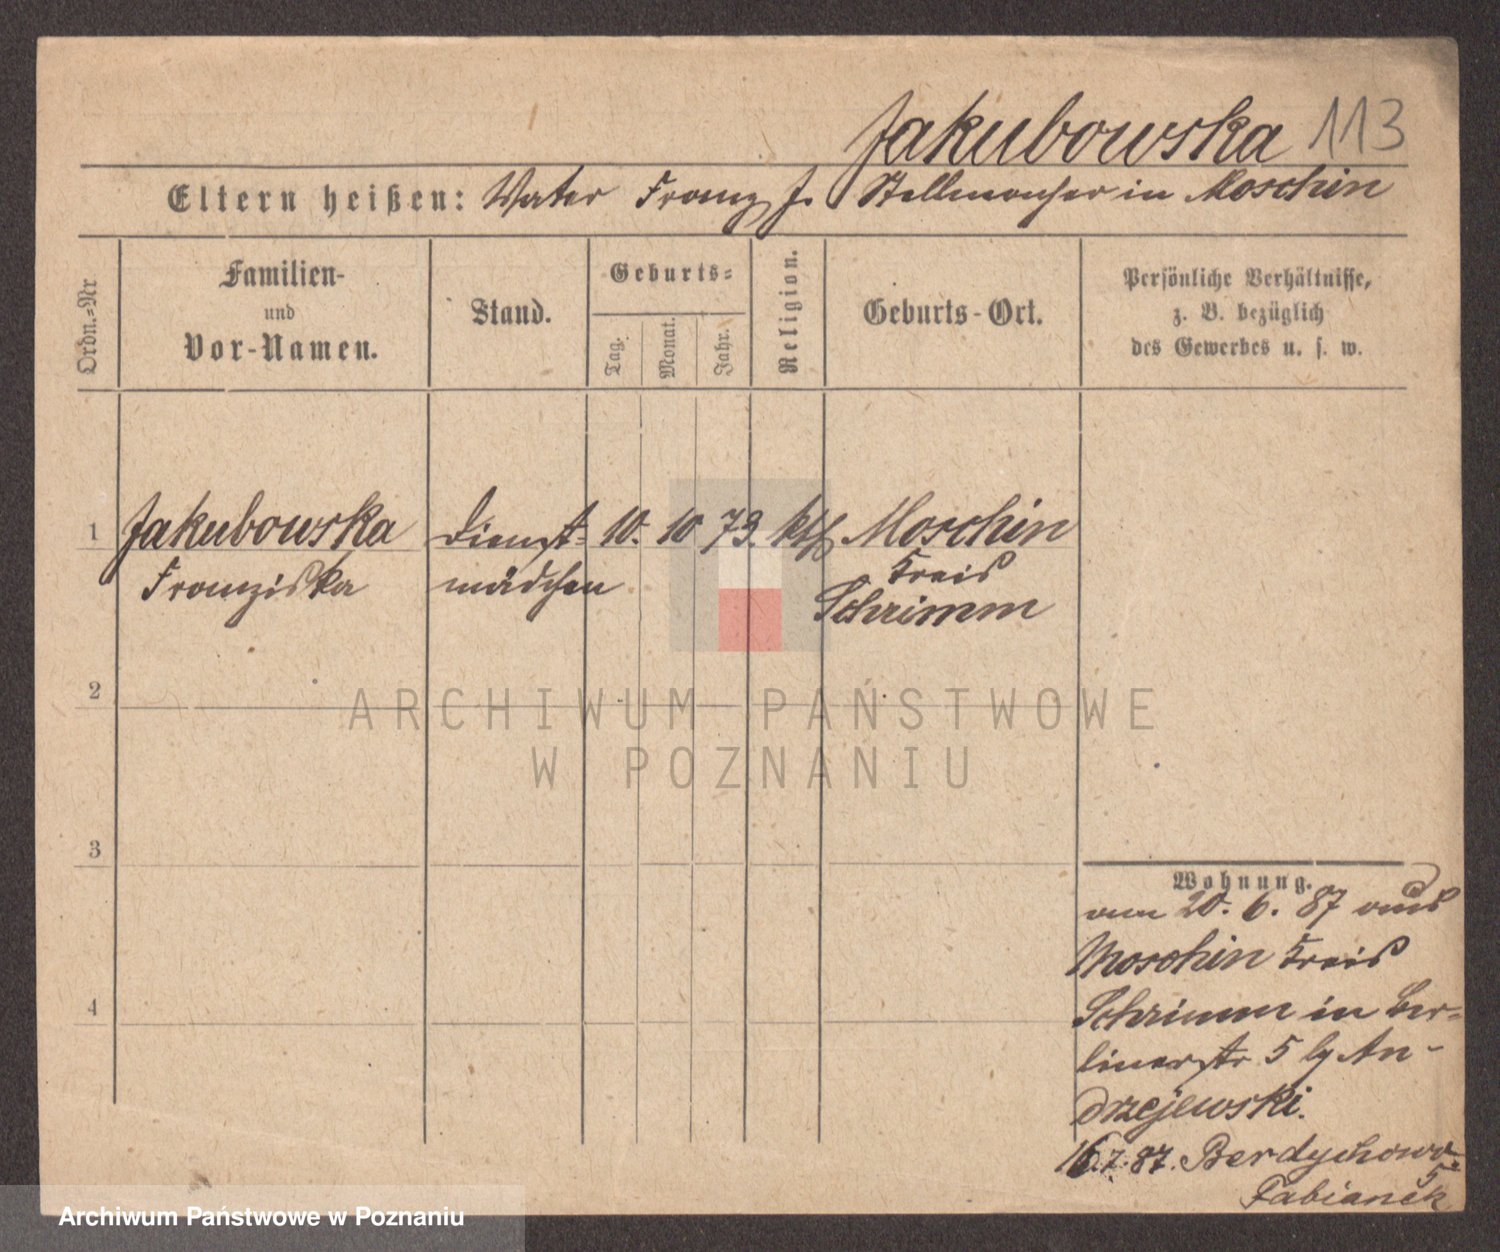 Jakubowska 113
Eltern heißen: Vater Franz J. Stellmacher in Moschin
Ordn.-Nr
Familien-
und
Vor-Namen.
Stand.
Geburts-
Tag.
Monat.
Jahr.
Religion.
Geburts-Ort.
Persönliche Verhältnisse,
z. B. bezüglich
des Gewerbes u. s. w.
1 Jakubowska Dienst- 10. 10 73. kth Moschin
Franziska mädchen Kreis
Schrimm
2
3
4
Wohnung.
am 20. 6. 87 aus
Moschin Kreis
Schrimm in Ber-
linerstr 5 by An-
drzejewski.
16.7.87. Berdychowo
5
Fabianek
ARCHIWUM PAŃSTWOWE
W POZNANIU
Archiwum Państwowe w Poznaniu